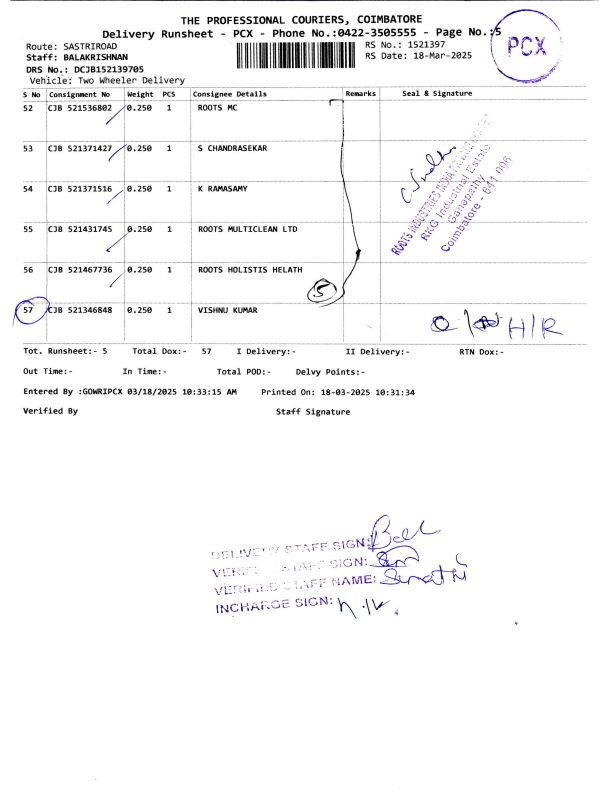 THE PROFESSIONAL COURIERS, COIMBATORE
Delivery Runsheet - PCX - Phone No.:0422-3505555 - Page No.:5
PCX
Route: SASTRIROAD RS No.: 1521397
Staff: BALAKRISHNAN RS Date: 18-Mar-2025
DRS No.: DCJB152139705
Vehicle: Two Wheeler Delivery
S No Consignment No Weight PCS Consignee Details Remarks Seal & Signature
52 CJB 521536802 0.250 1 ROOTS MC
53 CJB 521371427 0.250 1 S CHANDRASEKAR
54 CJB 521371516 0.250 1 K RAMASAMY
55 CJB 521431745 0.250 1 ROOTS MULTICLEAN LTD
56 CJB 521467736 0.250 1 ROOTS HOLISTIS HELATH
5
57 CJB 521346848 0.250 1 VISHNU KUMAR
ROOTS INDUSTRIES INDIA
RKG Industrial Estate
Ganapathy
Coimbatore - 641 006
H/R
Tot. Runsheet:- 5 Total Dox:- 57 I Delivery:- II Delivery:- RTN Dox:-
Out Time:- In Time:- Total POD:- Delvy Points:-
Entered By :GOWRIPCX 03/18/2025 10:33:15 AM Printed On: 18-03-2025 10:31:34
Verified By Staff Signature
DELIVERY STAFF SIGN:
VERIFIED STAFF SIGN:
VERIFIED STAFF NAME:
INCHARGE SIGN: